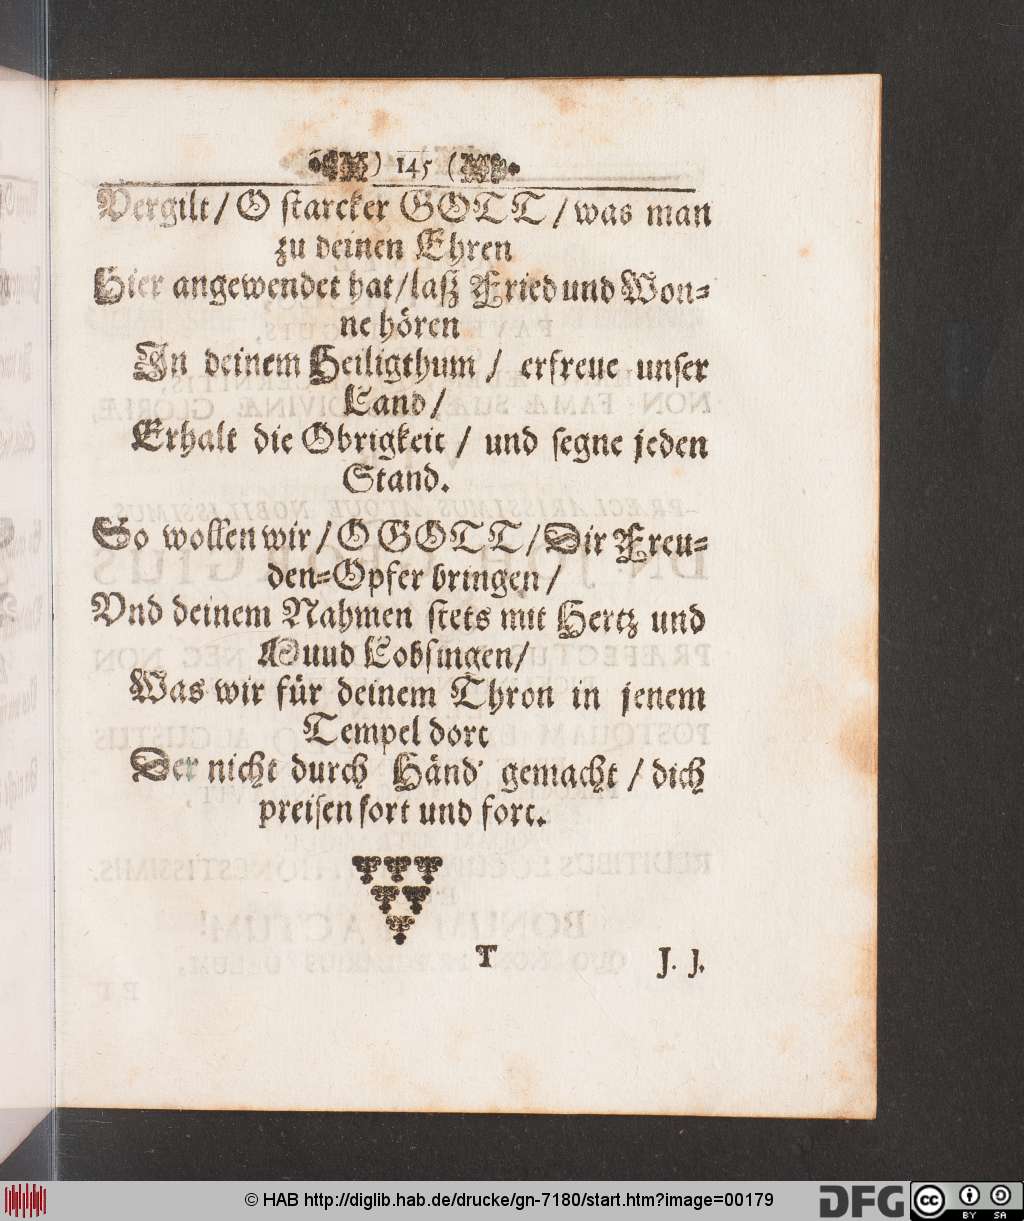 ) 145 (
Vergilt / O starcker GOTT / was man
zu deinen Ehren
Hier angewendet hat / laß Fried und Won=
ne hören
In deinem Heiligthum / erfreue unser
Land /
Erhalt die Obrigkeit / und segne jeden
Stand.
So wollen wir / O GOTT / Dir Freu=
den=Opfer bringen /
Vnd deinem Nahmen stets mit Hertz und
Muud Lobsingen /
Was wir für deinem Thron in jenem
Tempel dort
Der nicht durch Händ' gemacht / dich
preisen fort und fort.
T J. J.
© HAB http://diglib.hab.de/drucke/gn-7180/start.htm?image=00179
DFG
cc BY SA